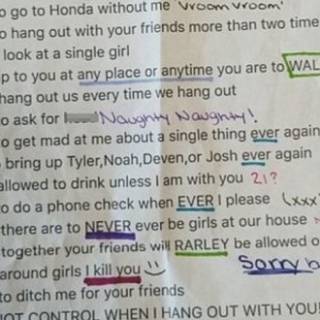 o go to Honda without me 'Vroom vroom'
o hang out with your friends more than two time
look at a single girl
p to you at any place or anytime you are to WAL
hang out us every time we hang out
o ask for Naughty Naughty!
o get mad at me about a single thing ever again
bring up Tyler,Noah,Deven,or Josh ever again
allowed to drink unless I am with you 21?
o do a phone check when EVER I please (xxx
there are to NEVER ever be girls at our house
together your friends will RARLEY be allowed o
around girls I kill you Sorry b
to ditch me for your friends
NOT CONTROL WHEN I HANG OUT WITH YOU!